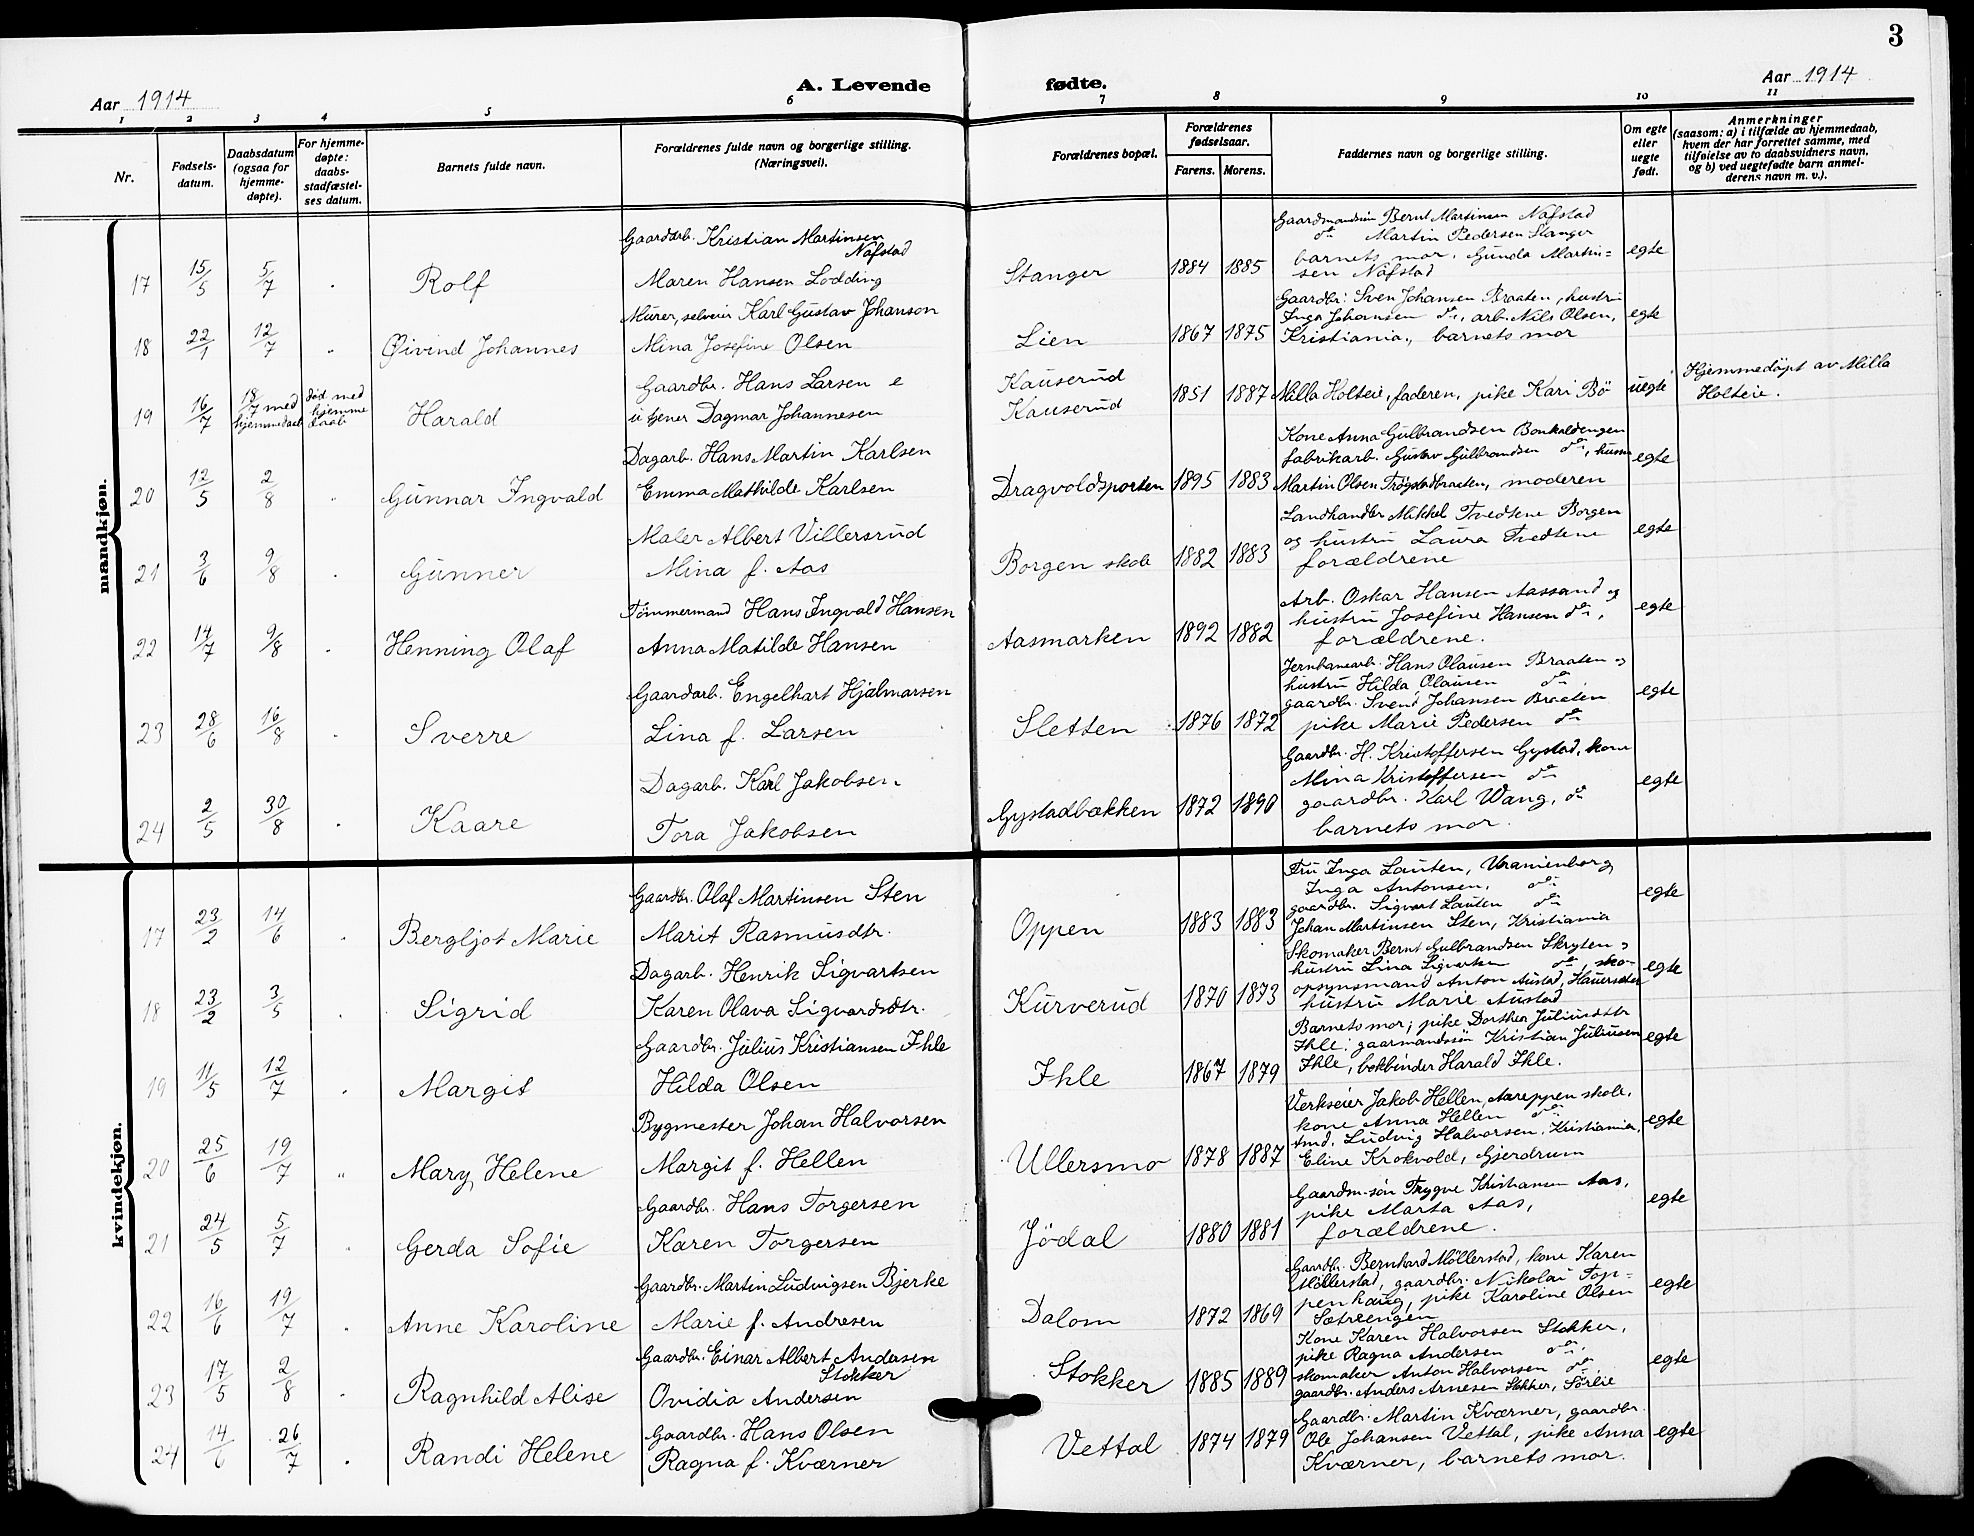 3
Aar 1914
A. Levende fødte.
Aar 1914
1 2 3 4 5 6 7 8 9 10 11
Nr.
Fødsels-
datum.
Daabsdatum
(ogsaa for
hjemme-
døpte).
For hjemme-
døpte:
daabs-
stadfæstel-
ses datum.
Barnets fulde navn.
Forældrenes fulde navn og borgerlige stilling.
(Næringsvei).
Forældrenes bopæl.
Forældrenes
fødselsaar.
Farens. Morens.
Faddernes navn og borgerlige stilling.
Om egte
eller
uegte
født.
Anmerkninger
(saasom: a) i tilfælde av hjemmedaab,
hvem der har forrettet samme, med
tilføielse av to daabsvidners navn,
og b) ved uegtefødte barn anmel-
derens navn m. v.).
mandkjøn.
Gaardarb. Kristian Martinsen
Nafstad
17 15/5 5/7 Rolf Maren Hansen Lodding Stanger 1884 1885 egte
Gaardmandssøn Bernt Martinsen Nafstad
do Martin Pedersen Stanger
barnets mor, Gunda Martin=
sen Nafstad
Murer, selveier Karl Gustav Johanson
18 22/1 12/7 Øivind Johannes Mina Josefine Olsen Lien 1867 1875 egte
Gaardbr. Sven Johansen Braaten, hustru
Inga Johansen do, arb. Nils Olsen,
Kristiania, barnets mor
Gaardbr. Hans Larsen e Kauserud
19 16/7 18/7 med hjemmedaab død med hjemme daab Harald u tjener Dagmar Johannesen Kauserud 1851 1887 Milla Holteie, faderen, pike Kari Bö uegte
Hjemmedöpt av Milla
Holteie.
Dagarb. Hans Martin Karlsen
20 12/5 2/8 Gunnar Ingvald Emma Mathilde Karlsen Dragvoldsporten 1895 1883 egte
Kone Anna Gulbrandsen Bonkaldengen
fabrikarb. Gustav Gulbrandsen do, husm
Martin Olsen Trøgstadbraaten, moderen
Maler Albert Villersrud
21 3/6 9/8 Gunner Mina f. Aas Borgen skole 1882 1883 egte
Landhandler Mikkel Tvedtene Borgen
og hustru Laura Tvedtene
forældrene
Tømmermand Hans Ingvald Hansen
22 14/7 9/8 Henning Olaf Anna Matilde Hansen Aasmarken 1892 1882 egte
Arb. Oskar Hansen Aassand og
hustru Josefine Hansen do,
forældrene.
Gaardarb. Engelhart Hjalmarsen
23 28/6 16/8 Sverre Lina f. Larsen Sletten 1876 1872 egte
Jernbanearb. Hans Olausen Braaten og
hustru Hilda Olausen do
gaardbr. Svend Johansen Braaten
pike Marie Pedersen do
Dagarb. Karl Jakobsen
24 2/5 30/8 Kaare Tora Jakobsen Gystadbækken 1872 1890 egte
Gaardbr. H. Kristoffersen Gystad, kone
Mina Kristoffersen do
gaardbr. Karl Wang, do
barnets mor.
kvindekjøn.
Gaardbr. Olaf Martinsen Sten
17 23/2 14/6 Bergljot Marie Marit Rasmusdtr. Oppen 1883 1883 egte
Fru Inga Lauten, Uranienborg,
Inga Antonsen, do
gaardbr. Sigvart Lauten do
Johan Martinsen Sten, Kristiania
Dagarb. Henrik Sigvartsen
18 23/2 3/5 Sigrid Karen Olava Sigvardsdtr. Kurverud 1870 1873 egte
Skomaker Bernt Gulbrandsen Skryten og
hustru Lina Sigvartsen do, sko-
opsynsmand Anton Austad, Hauersæter
hustru Marie Austad
Gaardbr. Julius Kristiansen Ihle
19 11/5 12/7 Margit Hilda Olsen Ihle 1867 1879 egte
Barnets mor; pike Dorthea Juliusdtr
Ihle; gaarmandssön Kristian Juliusen
Ihle, bokbinder Harald Ihle.
Bygmester Johan Halvorsen
20 25/6 19/7 Mary Helene Margit f. Hellen Ullersmo 1878 1887 egte
Verkseier Jakob Hellen, Aareppen skole,
kone Anna Hellen do
Amd. Ludvig Halvorsen, Kristiania,
Eline Krokvold, Gjerdrum
Gaardbr. Hans Torgersen
21 24/5 5/7 Gerda Sofie Karen Torgersen Jödal 1880 1881 egte
Gaardm.søn Trygve Kristiansen Aas,
pike Marta Aas,
forældrene.
Gaardbr. Martin Ludvigsen Bjerke
22 16/6 19/7 Anne Karoline Marie f. Andresen Dalom 1872 1869 egte
Gaardbr. Bernhard Möllerstad, kone Karen
Möllerstad, gaardbr. Nikolai Top=
penhaug, pike Karoline Olsen
Sætreengen
Gaardbr. Einar Albert Andersen
Stokker
23 17/5 2/8 Ragnhild Alise Ovidia Andersen Stokker 1885 1889 egte
Kone Karen Halvorsen Stokker,
pike Ragna Andersen do,
skomaker Anton Halvorsen do,
gaardbr. Anders Arnesen Stokker, Sörlie
Gaardbr. Hans Olsen
24 14/6 26/7 Randi Helene Ragna f. Kværner Vettal 1874 1879 egte
Gaardbr. Martin Kværner, gaardbr.
Ole Johansen Vettal, pike Anna
Kværner, barnets mor.